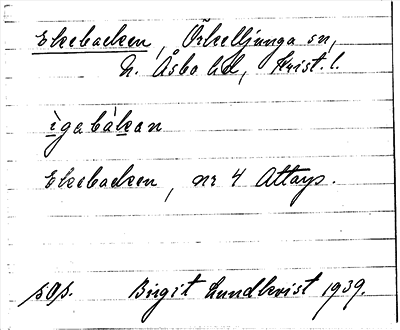 Ekebacken, Örkelljunga sn,
N. Åsbo hd, Krist. l.
ìgabàkan
Ekebacken, nr 4 Attarp.
sOp. Birgit Lundkvist 1939.